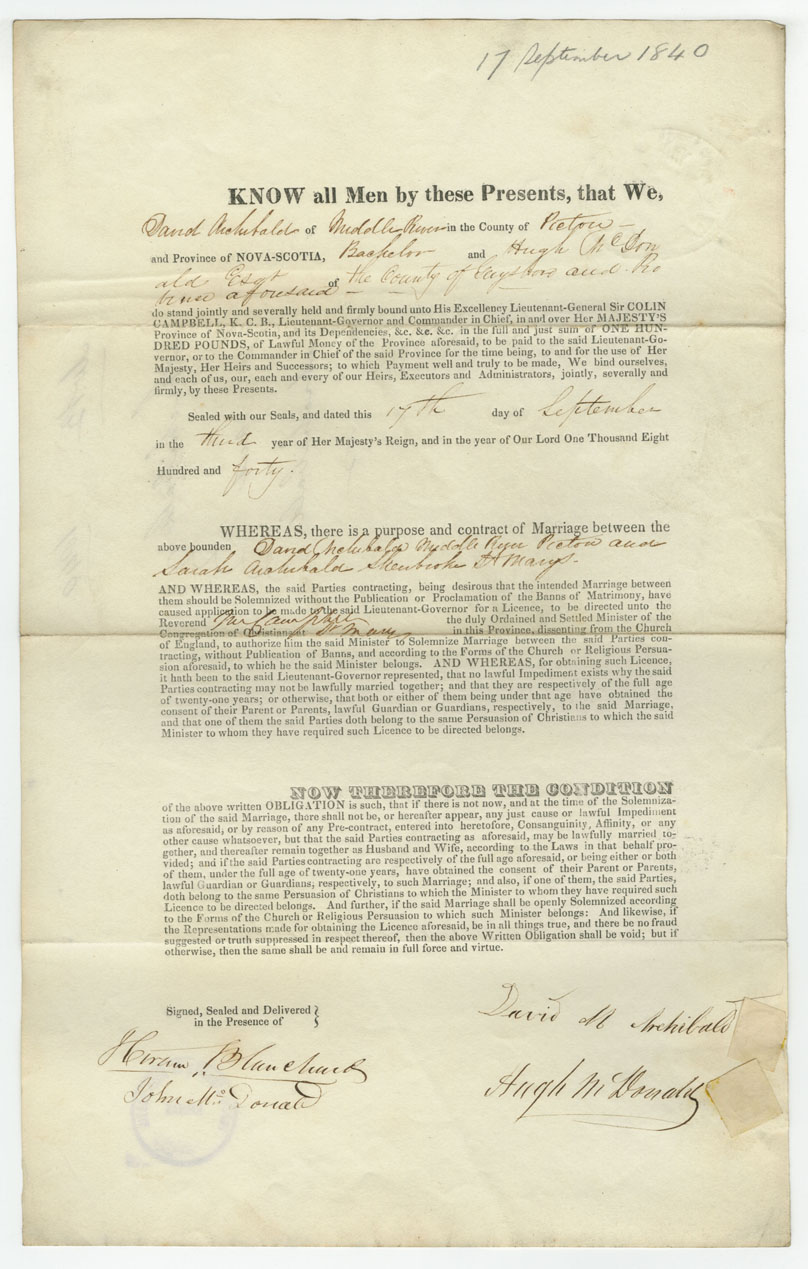 17 September 1840
KNOW all Men by these Presents, that We,
David Archibald of Middle River in the County of Pictou
and Province of NOVA-SCOTIA, Bachelor and Hugh McDon
ald Esqr of the County of Guysboro and Pro
vince aforesaid
do stand jointly and severally held and firmly bound unto His Excellency Lieutenant-General Sir COLIN
CAMPBELL, K. C. B., Lieutenant-Governor and Commander in Chief, in and over Her MAJESTY'S
Province of Nova-Scotia, and its Dependencies, &c. &c. &c. in the full and just sum of ONE HUN-
DRED POUNDS, of Lawful Money of the Province aforesaid, to be paid to the said Lieutenant-Go-
vernor, or to the Commander in Chief of the said Province for the time being, to and for the use of Her
Majesty, Her Heirs and Successors; to which Payment well and truly to be made, We bind ourselves,
and each of us, our, each and every of our Heirs, Executors and Administrators, jointly, severally and
firmly, by these Presents.
Sealed with our Seals, and dated this 17th day of September
in the third year of Her Majesty's Reign, and in the year of Our Lord One Thousand Eight
Hundred and forty.
WHEREAS, there is a purpose and contract of Marriage between the
above bounden, David Archibald Middle River Pictou and
Sarah Archibald Sherbrooke St Marys.
AND WHEREAS, the said Parties contracting, being desirous that the intended Marriage between
them should be Solemnized without the Publication or Proclamation of the Banns of Matrimony, have
caused application to be made to the said Lieutenant-Governor for a Licence, to be directed unto the
Reverend Mr Campbell the duly Ordained and Settled Minister of the
Congregation of Christians at St Marys in this Province, dissenting from the Church
of England, to authorize him the said Minister to Solemnize Marriage between the said Parties con-
tracting, without Publication of Banns, and according to the Forms of the Church or Religious Persua-
sion aforesaid, to which he the said Minister belongs. AND WHEREAS, for obtaining such Licence,
it hath been to the said Lieutenant-Governor represented, that no lawful Impediment exists why the said
Parties contracting may not be lawfully married together; and that they are respectively of the full age
of twenty-one years; or otherwise, that both or either of them being under that age have obtained the
consent of their Parent or Parents, lawful Guardian or Guardians, respectively, to the said Marriage,
and that one of them the said Parties doth belong to the same Persuasion of Christians to which the said
Minister to whom they have required such Licence to be directed belongs.
NOW THEREFORE THE CONDITION
of the above written OBLIGATION is such, that if there is not now, and at the time of the Solemniza-
tion of the said Marriage, there shall not be, or hereafter appear, any just cause or lawful Impediment
as aforesaid, or by reason of any Pre-contract, entered into heretofore, Consanguinity, Affinity, or any
other cause whatsoever, but that the said Parties contracting as aforesaid, may be lawfully married to-
gether, and thereafter remain together as Husband and Wife, according to the Laws in that behalf pro-
vided; and if the said Parties contracting are respectively of the full age aforesaid, or being either or both
of them, under the full age of twenty-one years, have obtained the consent of their Parent or Parents,
lawful Guardian or Guardians, respectively, to such Marriage; and also, if one of them, the said Parties,
doth belong to the same Persuasion of Christians to which the Minister to whom they have required such
Licence to be directed belongs. And further, if the said Marriage shall be openly Solemnized according
to the Forms of the Church or Religious Persuasion to which such Minister belongs: And likewise, if
the Representations made for obtaining the Licence aforesaid, be in all things true, and there be no fraud
suggested or truth suppressed in respect thereof, then the above Written Obligation shall be void; but if
otherwise, then the same shall be and remain in full force and virtue.
Signed, Sealed and Delivered
in the Presence of
David M Archibald
Hiram Blanchard
John McDonald
Hugh McDonald